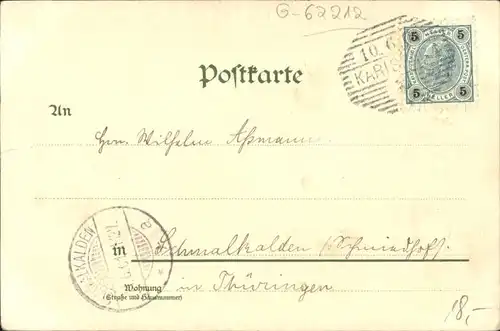 G-62212
5 5
10.6
KARLS
5 HELLER 5
Postkarte
An
Herr Wilhelm Aßmann
SCHMALKALDEN
in Schmalkalden
Wohnung
(Straße und Hausnummer)
in Thüringen
18,-